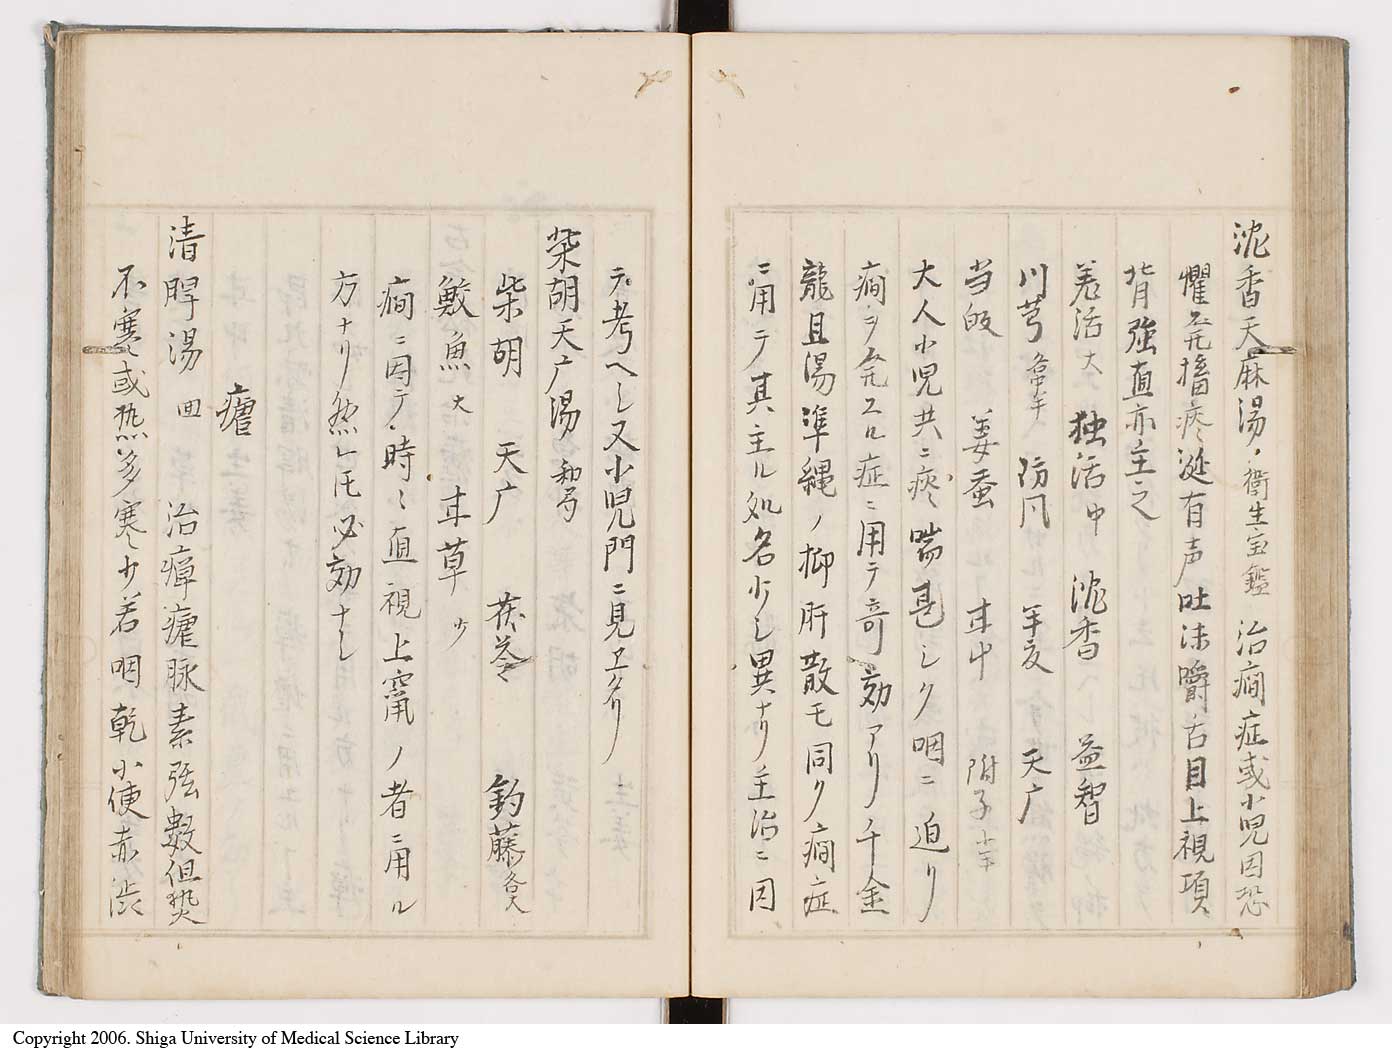 沈香天麻湯 衛生宝鑑 治癇症或小児因恐
懼発搐痰涎有声吐沫嚼舌目上視項
背強直亦主之
羌活大 独活中 沈香 益智
川芎 防风 半夏 天广
当皈 姜蚕 甘中 附子
大人小児共ニ痰喘甚シク咽ニ迫リ
癇ヲ発スル症ニ用テ奇効アリ千金
龍且湯準縄ノ抑肝散モ同ク癇症
ニ用テ其主ル処名少シ異ナリ主治ニ因
テ考ヘシ又小児門ニ見ヱタリ
柴胡天广湯 和局
柴胡 天广 茯苓 釣藤各大
鮫魚大 甘草少
癇ニ因テ時々直視上竄ノ者ニ用ル
方ナリ然レ𪜈必効ナシ
瘧
清脾湯 回 治瘴瘧脉素弦數但熱
不寒或热多寒少若咽乾小便赤渋
Copyright 2006. Shiga University of Medical Science Library